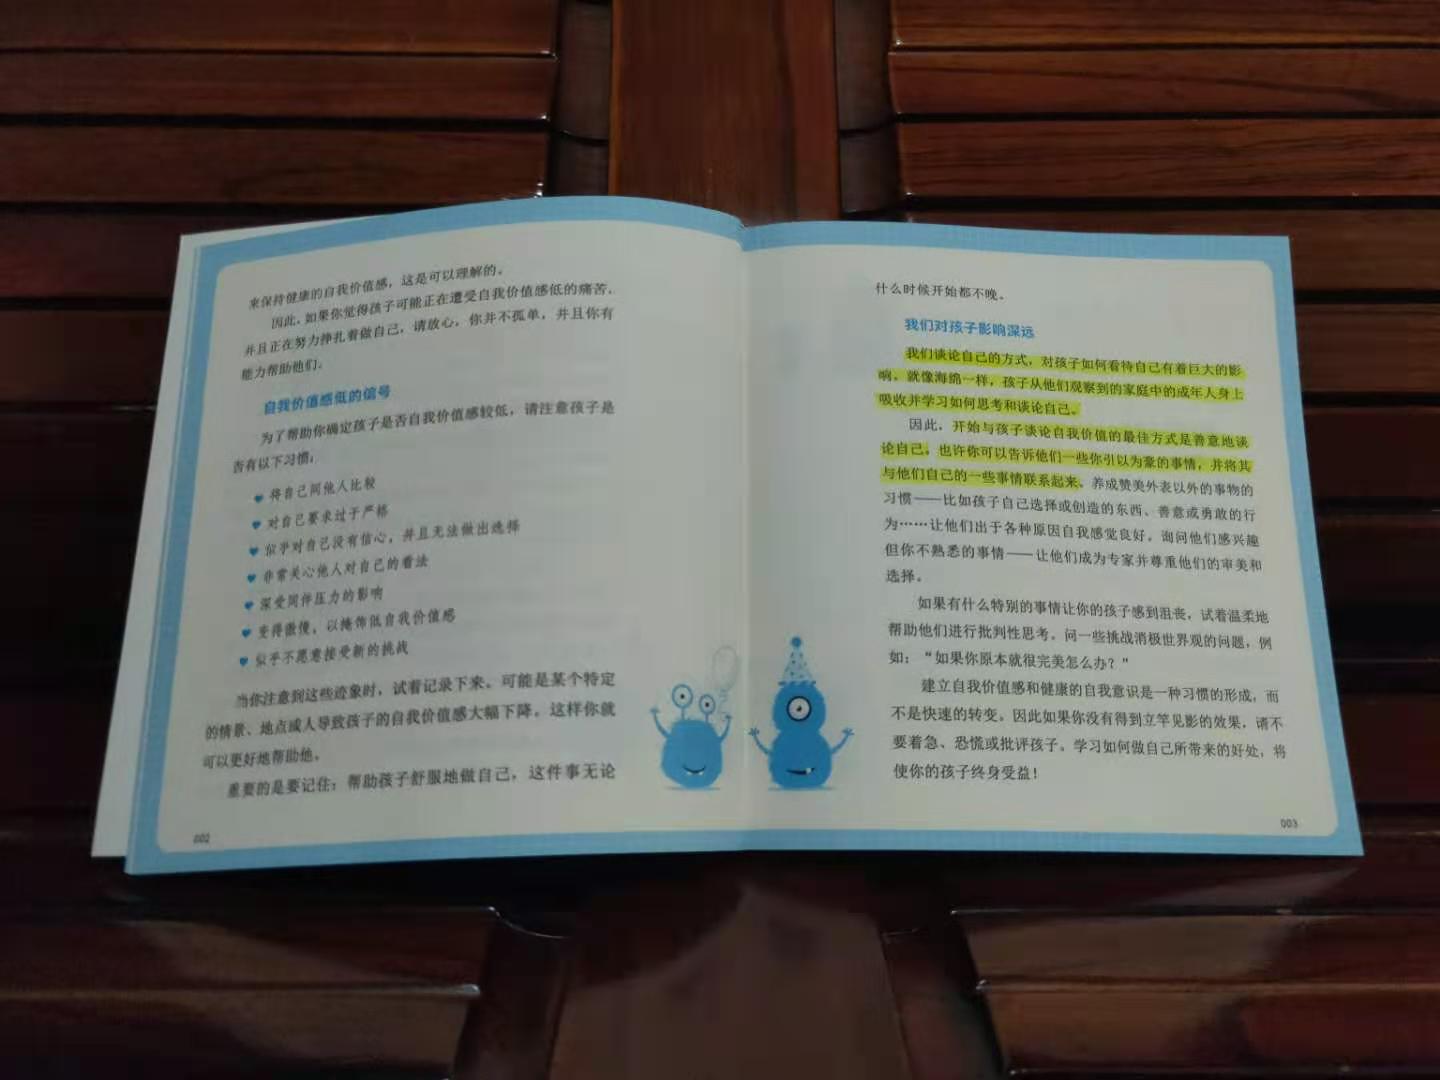 来保持健康的自我价值感，这是可以理解的。
因此，如果你觉得孩子可能正在遭受自我价值感低的痛苦，
并且正在努力挣扎着做自己，请放心，你并不孤单，并且你有
能力帮助他们。
自我价值感低的信号
为了帮助你确定孩子是否自我价值感较低，请注意孩子是
否有以下习惯：
将自己同他人比较
对自己要求过于严格
似乎对自己没有信心，并且无法做出选择
非常关心他人对自己的看法
深受同伴压力的影响
变得傲慢，以掩饰低自我价值感
似乎不愿意接受新的挑战
当你注意到这些迹象时，试着记录下来。可能是某个特定
的情景、地点或人导致孩子的自我价值感大幅下降。这样你就
可以更好地帮助他。
重要的是要记住：帮助孩子舒服地做自己，这件事无论
002
什么时候开始都不晚。
我们对孩子影响深远
我们谈论自己的方式，对孩子如何看待自己有着巨大的影
响。就像海绵一样，孩子从他们观察到的家庭中的成年人身上
吸收并学习如何思考和谈论自己。
因此，开始与孩子谈论自我价值的最佳方式是善意地谈
论自己。也许你可以告诉他们一些你引以为豪的事情，并将其
与他们自己的一些事情联系起来。养成赞美外表以外的事物的
习惯——比如孩子自己选择或创造的东西、善意或勇敢的行
为……让他们出于各种原因自我感觉良好。询问他们感兴趣
但你不熟悉的事情——让他们成为专家并尊重他们的审美和
选择。
如果有什么特别的事情让你的孩子感到沮丧，试着温柔地
帮助他们进行批判性思考。问一些挑战消极世界观的问题，例
如：“如果你原本就很完美怎么办？”
建立自我价值感和健康的自我意识是一种习惯的形成，而
不是快速的转变。因此如果你没有得到立竿见影的效果，请不
要着急、恐慌或批评孩子。学习如何做自己所带来的好处，将
使你的孩子终身受益！
003